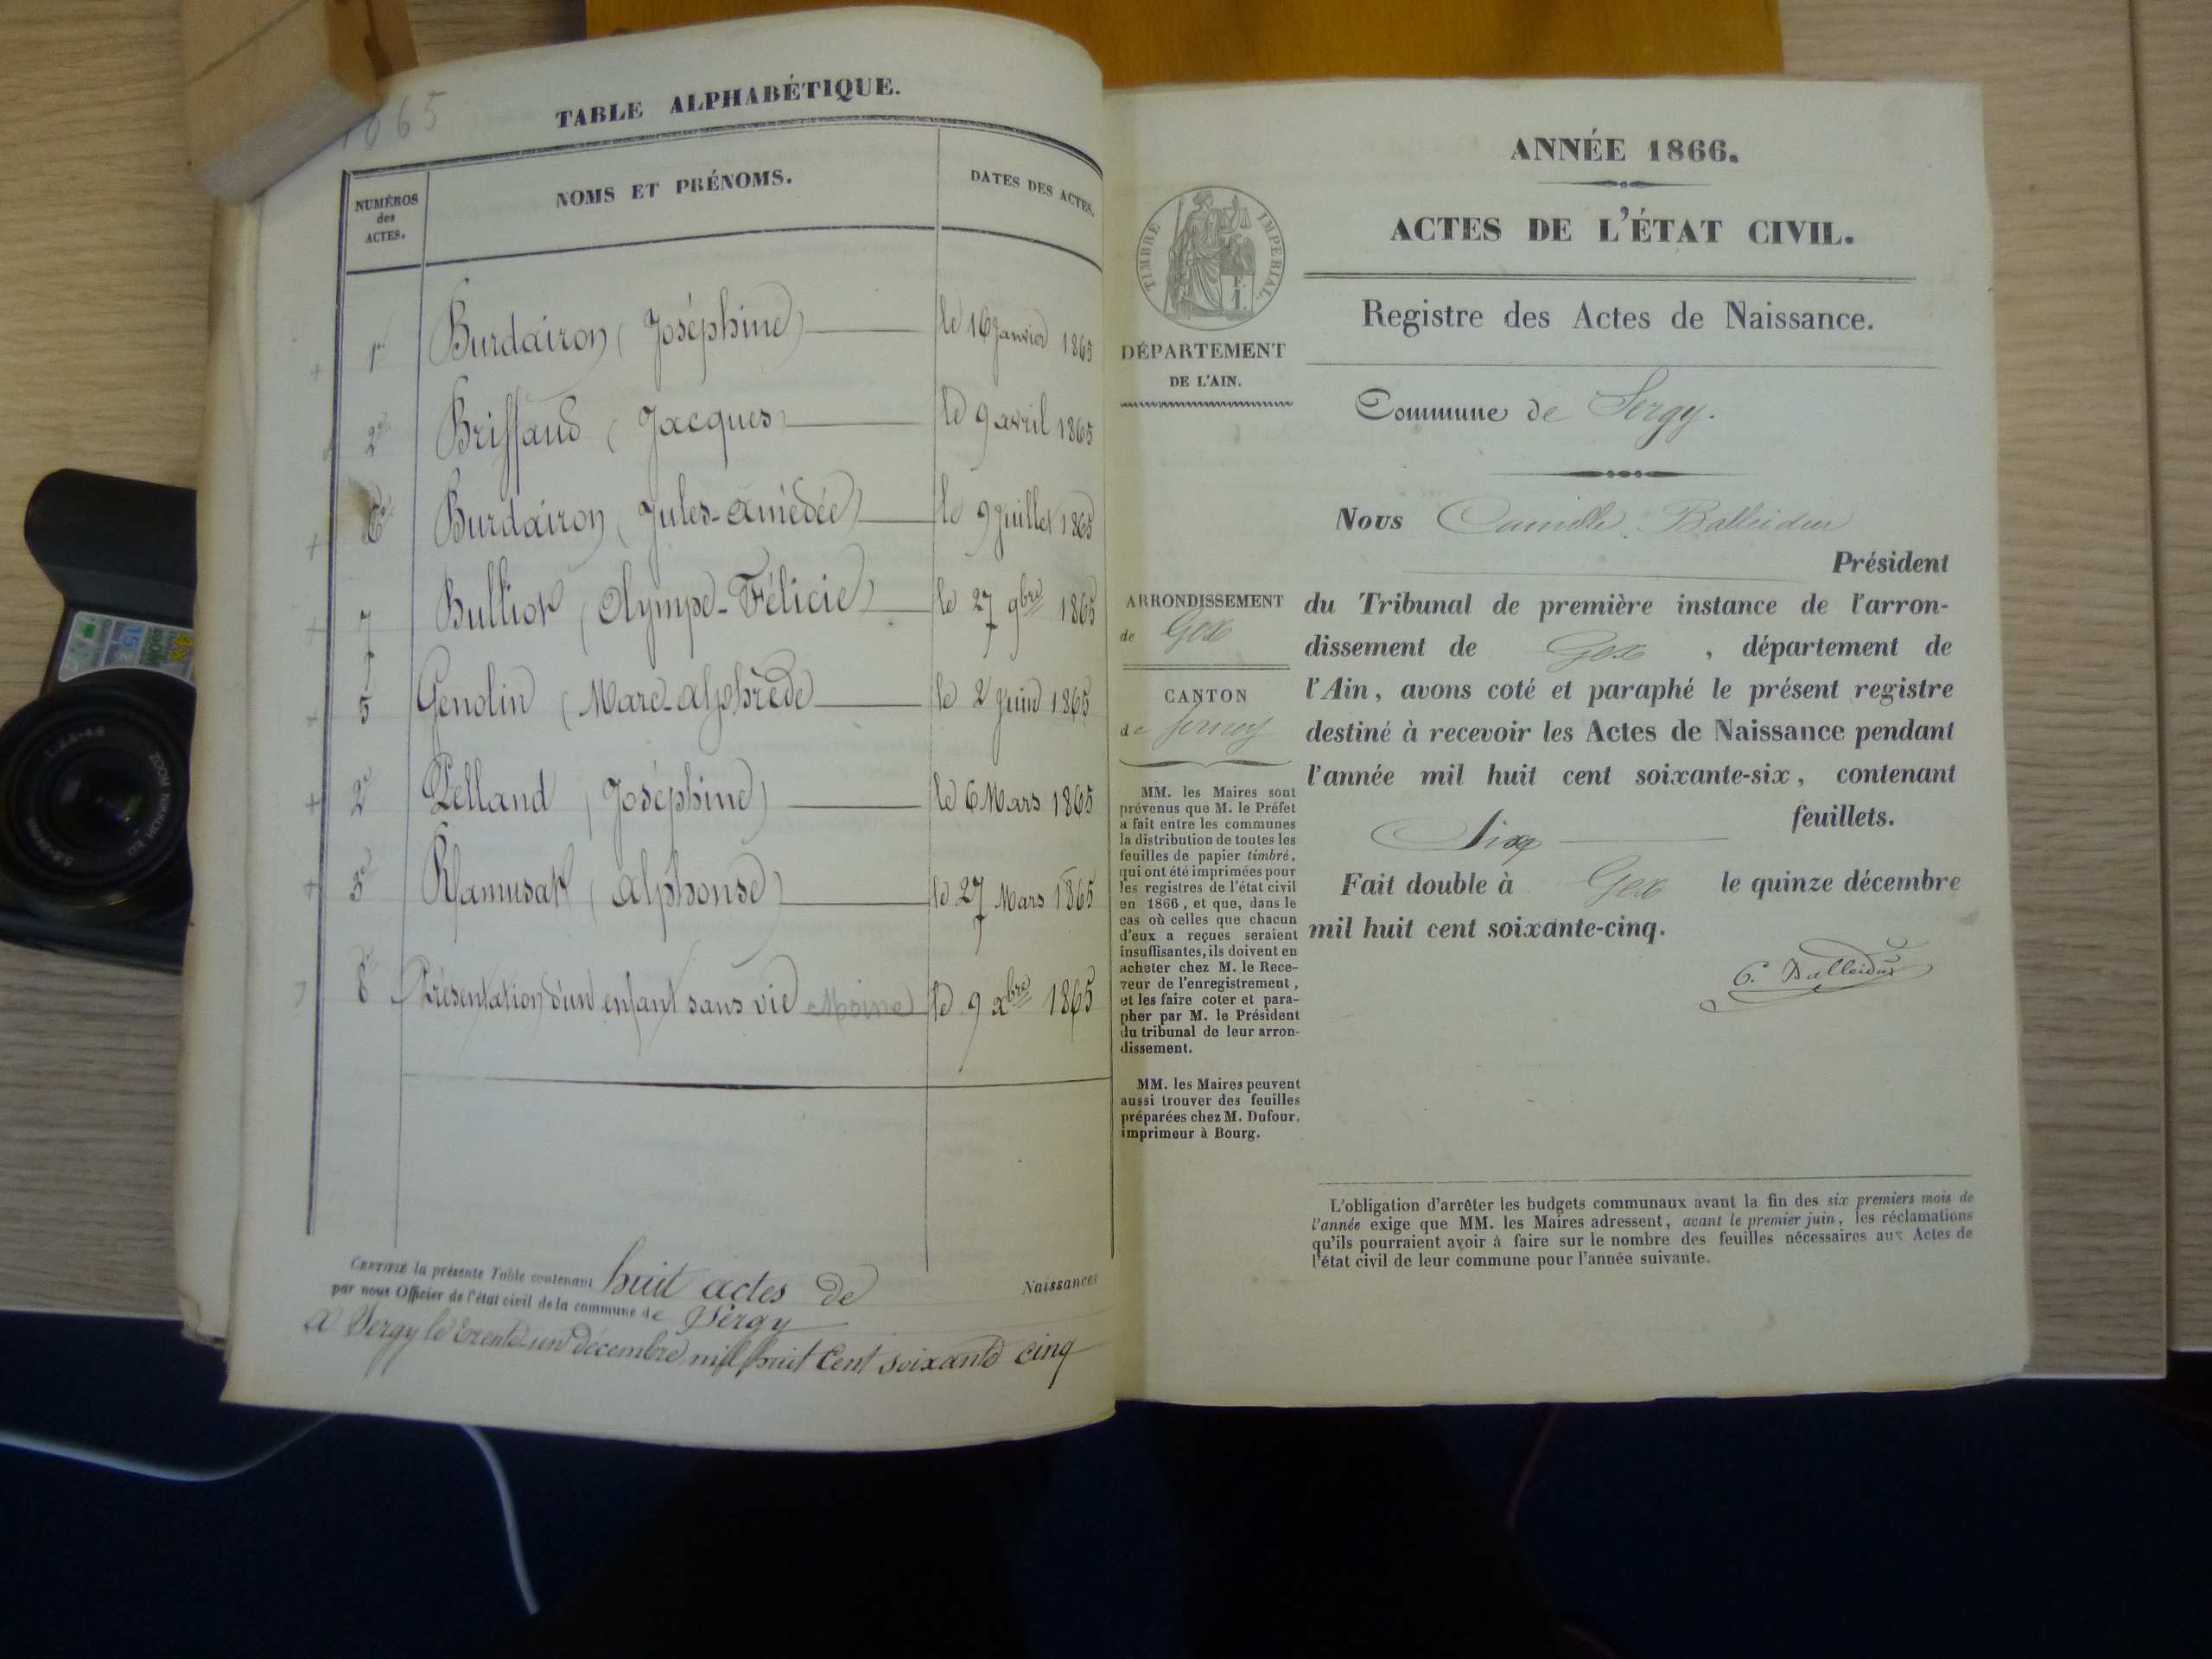 1865
TABLE ALPHABÉTIQUE.
NUMÉROS
des
ACTES.
NOMS ET PRÉNOMS.
DATES DES ACTES.
1er Burdairon (Joséphine) le 16 Janvier 1865
2e Briffaud (Jacques) le 9 avril 1865
6e Burdairon (Jules-amédée) le 9 Juillet 1865
7 Bulliot (Olympe-Félicie) le 27 9bre 1865
5 Genolin (Marc-alphrède le 2 Juin 1865
2e Pelland (Joséphine) le 6 Mars 1865
3e Ramusat (alphonse) le 27 Mars 1865
8e Présentation d'un enfant sans vie Moine le 9 xbre 1865
CERTIFIÉ la présente Table contenant huit actes de Naissances
par nous Officier de l'état civil de la commune de Sergy
a Sergy le trente-un décembre mil huit Cent soixante cinq
ANNÉE 1866.
ACTES DE L'ÉTAT CIVIL.
TIMBRE IMPERIAL.
Registre des Actes de Naissance.
DÉPARTEMENT
DE L'AIN.
Commune de Sergy.
Nous Camille Balleidier
Président
ARRONDISSEMENT
de Gex
CANTON
de
du Tribunal de première instance de l'arron-
dissement de Gex, département de
l'Ain, avons coté et paraphé le présent registre
destiné à recevoir les Actes de Naissance pendant
l'année mil huit cent soixante-six, contenant
Six feuillets.
Fait double à Gex le quinze décembre
mil huit cent soixante-cinq.
C. Balleidier
MM. les Maires sont
prévenus que M. le Préfet
a fait entre les communes
la distribution de toutes les
feuilles de papier timbré,
qui ont été imprimées pour
les registres de l'état civil
en 1866, et que, dans le
cas où celles que chacun
d'eux a reçues seraient
insuffisantes, ils doivent en
acheter chez M. le Rece-
veur de l'enregistrement,
et les faire coter et para-
pher par M. le Président
du tribunal de leur arron-
dissement.
MM. les Maires peuvent
aussi trouver des feuilles
préparées chez M. Dufour,
imprimeur à Bourg.
L'obligation d'arrêter les budgets communaux avant la fin des six premiers mois de
l'année exige que MM. les Maires adressent, avant le premier juin, les réclamations
qu'ils pourraient avoir à faire sur le nombre des feuilles nécessaires aux Actes de
l'état civil de leur commune pour l'année suivante.